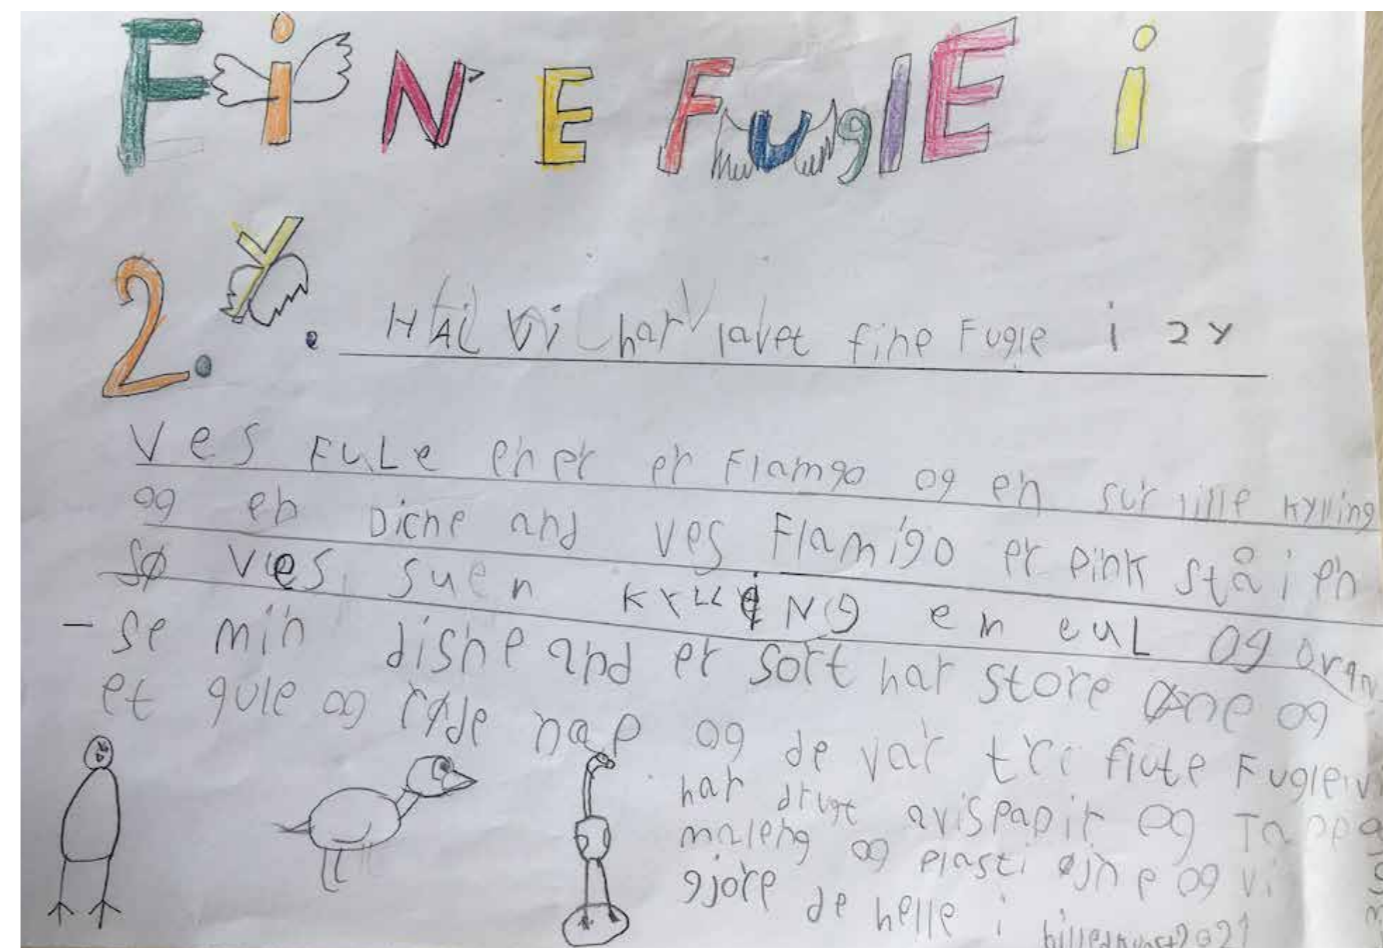 FiNE FuglE i
2.Y. HAi Vi har lavet fine Fugle i 2Y
Ves FuLe ener er Flamgo og en sur lille kylling
og en Diche and ves Flamigo er pink stå i en
sø ves suen KYLLiNg er euL og oran
- se min dishe and er sort har store øne og
et gule og røde næp og de var tre flote Fugle vi
har drugt avispapir og Tappe
maleng og plasti øjne og vi
gjore de helle i billedkunst 2021